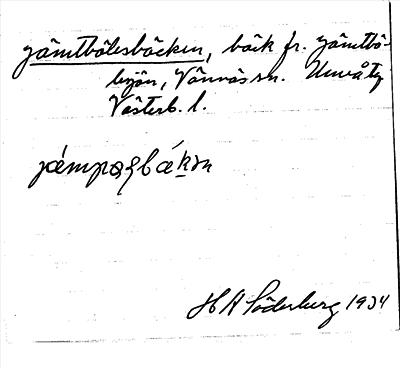 Jämtbölesbäcken, bäck fr. Jämtbö-
lesjön, Vännäs sn. Umeå tg
Västerb. l.
H A Söderberg 1934